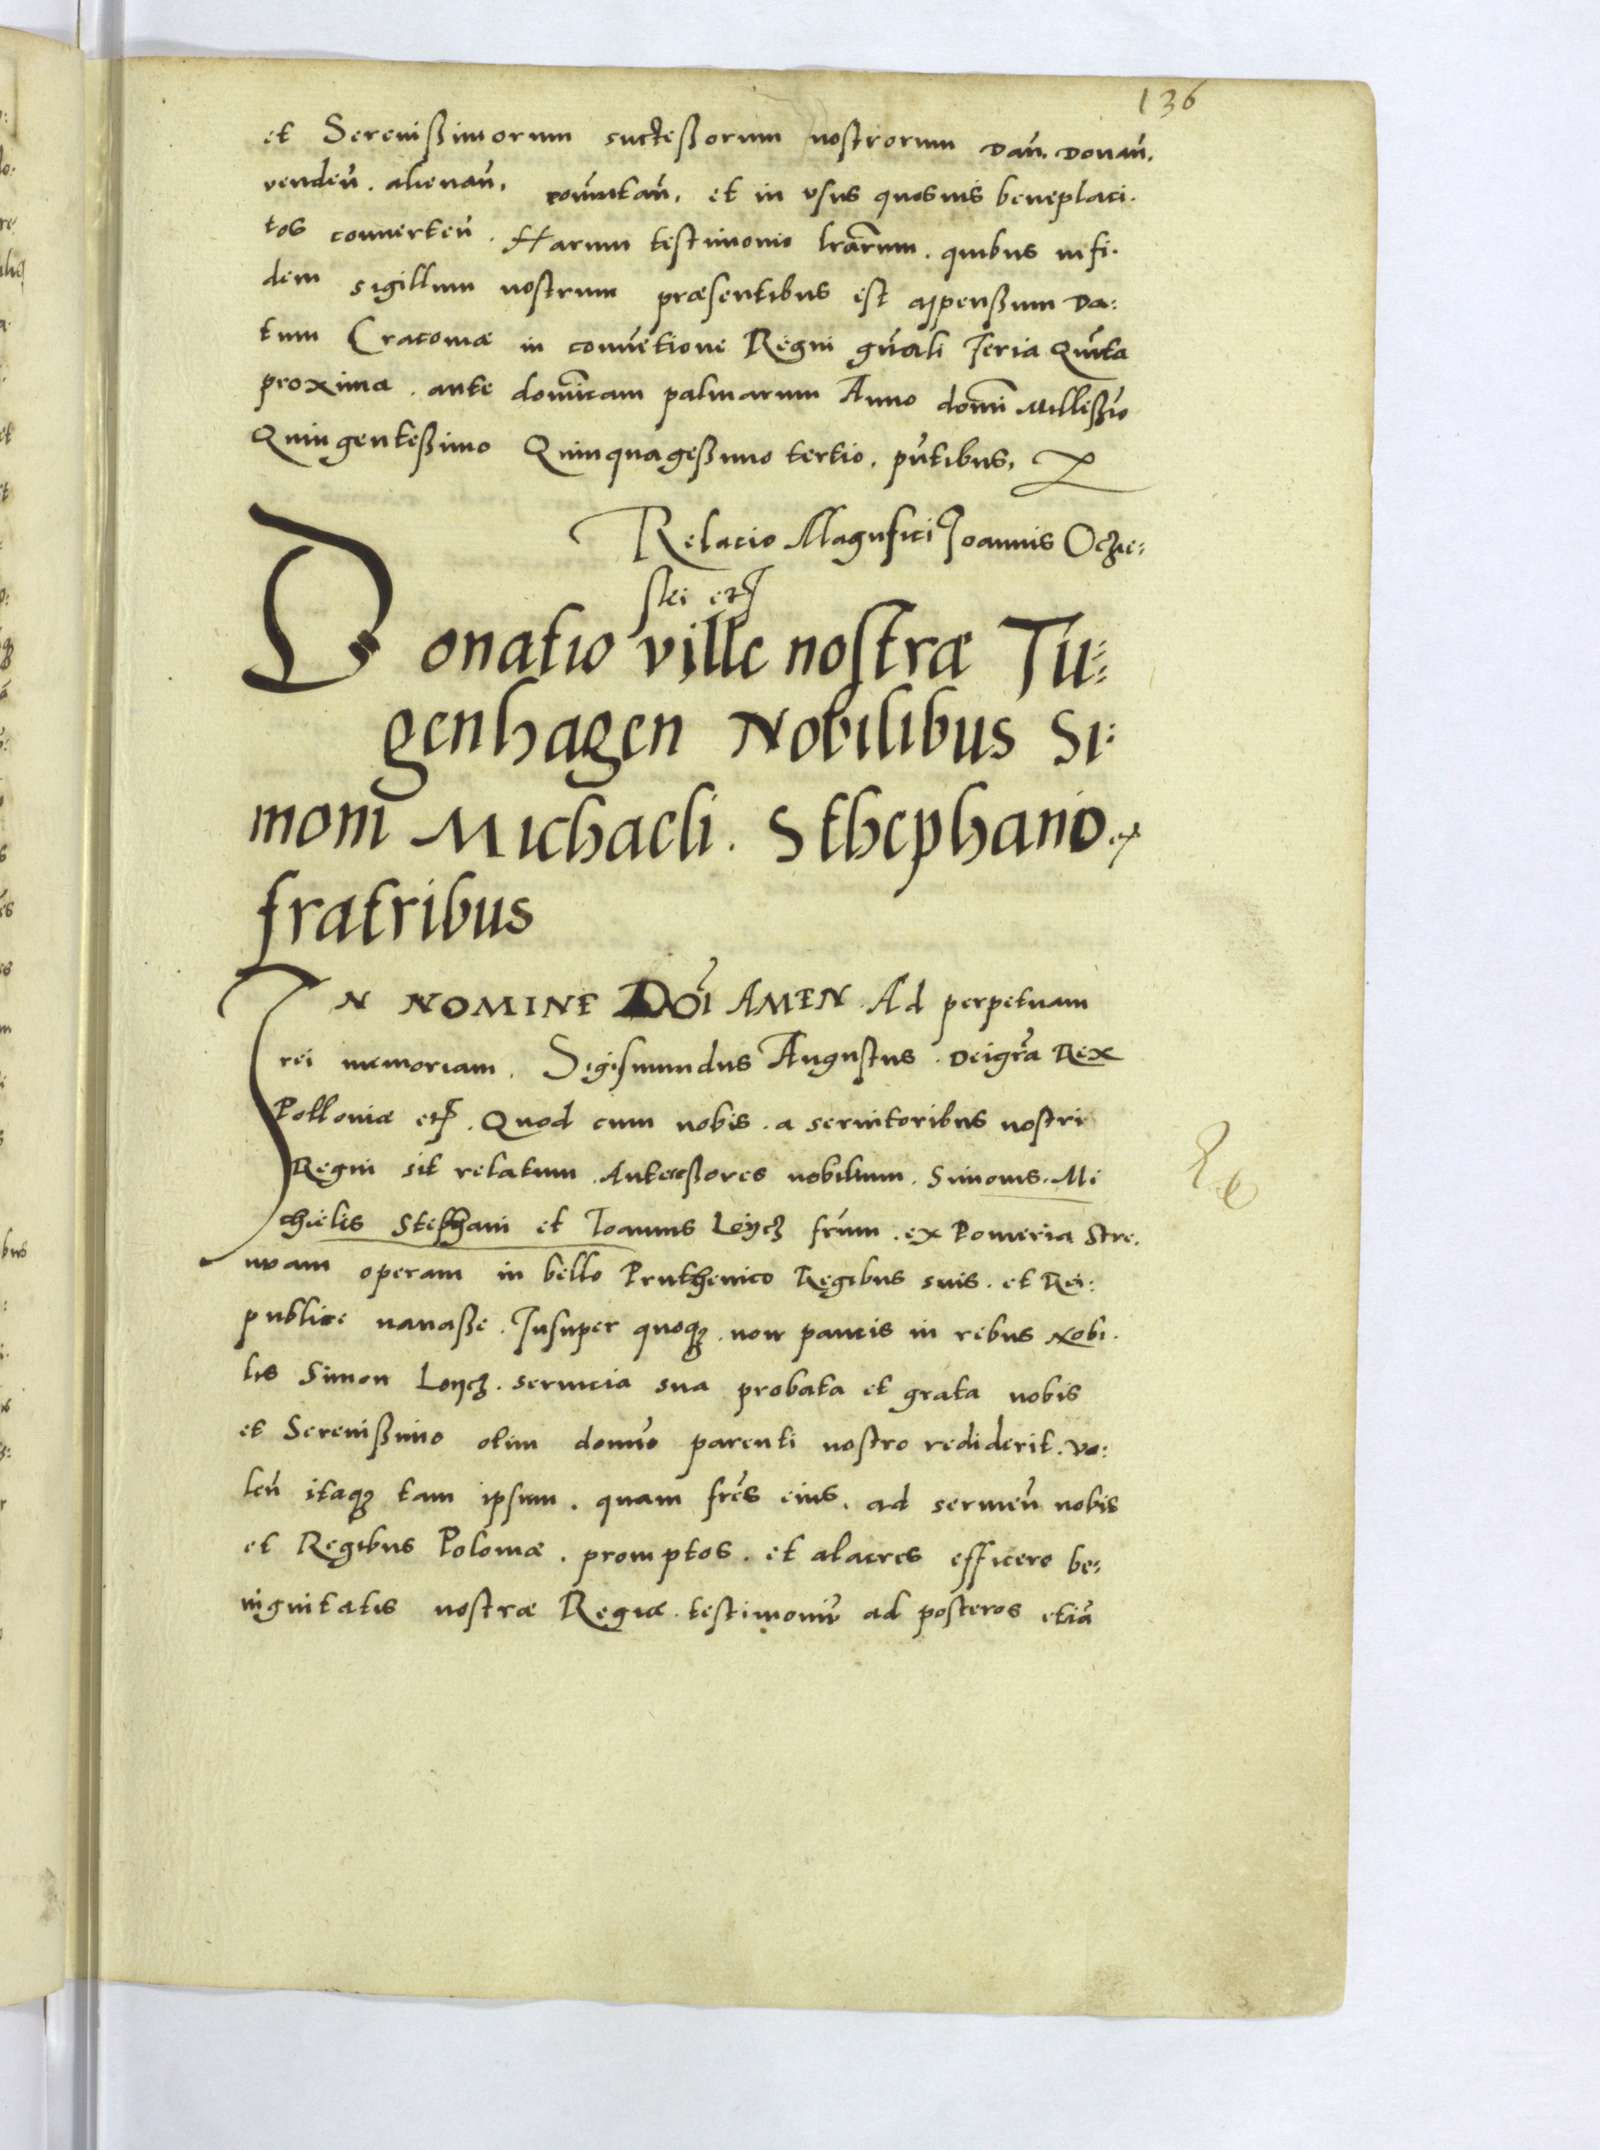 136
et Serenißimorum succeßorum nostrorum dan̄. donan̄.
venden̄. alienan̄. com̄utan̄. et in vsus quosuis beneplaci.
tos conuerten̄. Harum testimonio lr̄arum. quibus in fi.
dem sigillum nostrum præsentibus est appensum Da:
tum Cracouiæ in conuētione Regni gn̄ali feria Quīta
proxima. ante domīcam palmarum Anno domī Milleßīo
Quingenteßimo Quinquageßimo tertio. pn̄tibus.
Relacio Magnifici Joannis Oczie:
ski etc̄
Donatio ville nostræ Tu:
genhagen Nobilibus Si:
moni Michaeli. Sthephano.
fratribus
IN NOMINE DOI AMEN. Ad perpetuam
rei memoriam. Sigismundus Augustus. Dei gr̄a Rex
Polloniæ etc̄. Quod cum nobis. a seruitoribus nostri
Regni sit relatum. Anteceßores nobilium. Simonis. Mi
chaelis Stephani et Ioannis Loÿcz fr̄um. ex Pomeria Stre.
nuam operam in bello Pruthenico Regibus suis. et Rei:
publice nauaße. Insuper quoqꝫ. non paucis in rebus Nobi.
lis Simon Loÿcz. seruicia sua probata et grata nobis
et Serenißimo olim domīo parenti nostro rediderit. vo:
len̄ itaqꝫ tam ipsum. quam fr̄es eius. ad seruien̄ nobis
et Regibus Poloniæ. promptos. et alacres efficere be:
nignitatis nostræ Regiæ. testimoniū ad posteros etiā